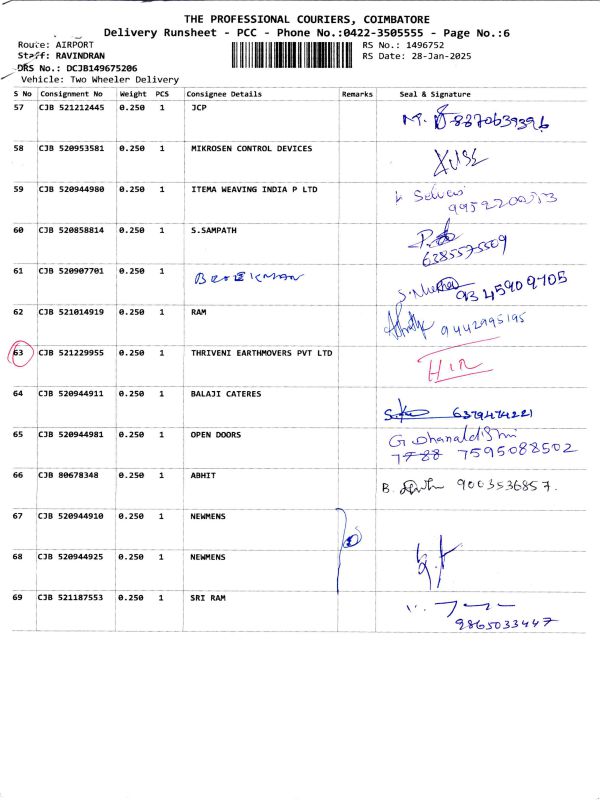 THE PROFESSIONAL COURIERS, COIMBATORE
Delivery Runsheet - PCC - Phone No.:0422-3505555 - Page No.:6
Route: AIRPORT RS No.: 1496752
Staff: RAVINDRAN RS Date: 28-Jan-2025
DRS No.: DCJB149675206
Vehicle: Two Wheeler Delivery
S No Consignment No Weight PCS Consignee Details Remarks Seal & Signature
57 CJB 521212445 0.250 1 JCP M. 8870639396
58 CJB 520953581 0.250 1 MIKROSEN CONTROL DEVICES
59 CJB 520944980 0.250 1 ITEMA WEAVING INDIA P LTD
60 CJB 520858814 0.250 1 S.SAMPATH
6385575509
61 CJB 520907701 0.250 1 9345909705
62 CJB 521014919 0.250 1 RAM 9442995195
63 CJB 521229955 0.250 1 THRIVENI EARTHMOVERS PVT LTD
64 CJB 520944911 0.250 1 BALAJI CATERES 6379474221
65 CJB 520944981 0.250 1 OPEN DOORS
7595088502
66 CJB 80678348 0.250 1 ABHIT B. 9003536857.
67 CJB 520944910 0.250 1 NEWMENS
68 CJB 520944925 0.250 1 NEWMENS
69 CJB 521187553 0.250 1 SRI RAM
9865033447